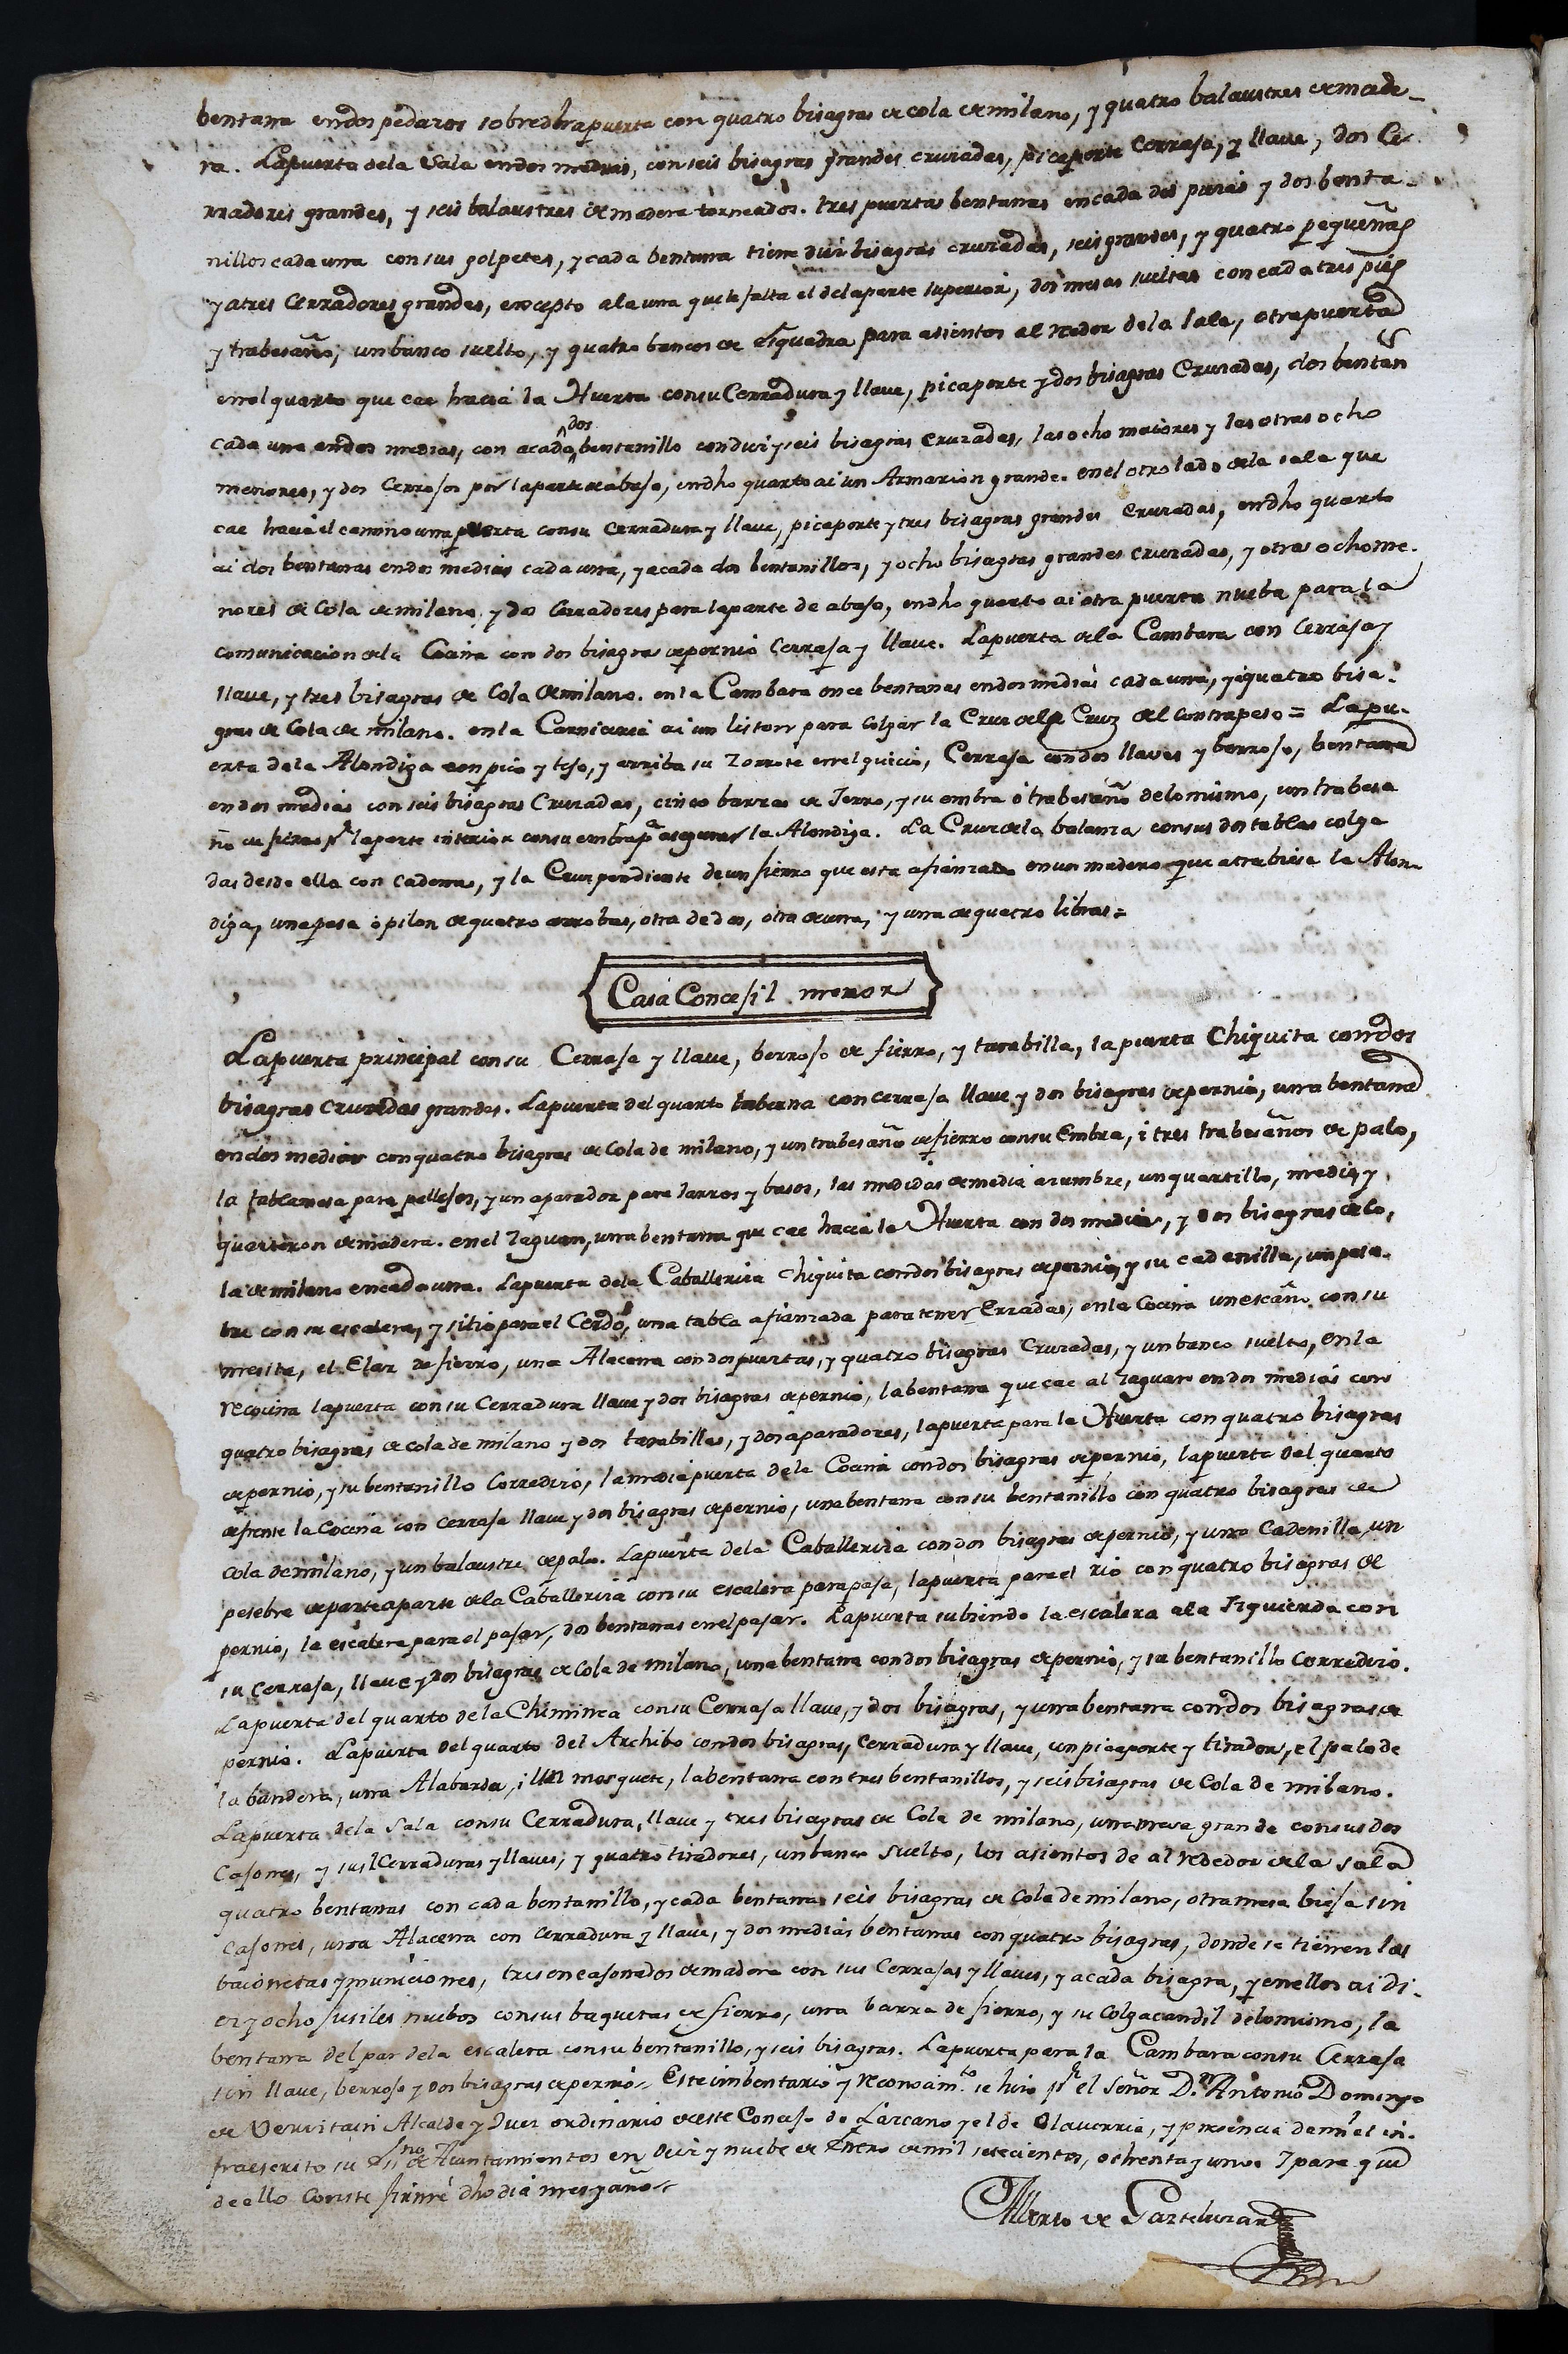 bentana en dos pedazos sobre dha puerta con quatro bisagras de cola de milano, y quatro balaustres de made-
ra. La puerta de la Sala en dos medias, con seis bisagras grandes cruzadas, picaporte Cerraja, y llave, dos Ce-
rradores grandes, y seis balaustres de madera torneados. tres puertas bentanas en cada dos puertas y dos benta-
nillos cada una con sus golpetes, y cada bentana tiene diez bisagras cruzadas, seis grandes, y quatro pequeñas
y a tres Cerradores grandes, excepto a la una que le falta el de la parte superior, dos mesas sueltas con cada tres pies
y trabesaño, un banco suelto, y quatro bancos de Esquadra para asientos al redor de la sala, otra puerta
en el quarto que cae hacia la Huerta con su Cerradura y llave, picaporte y dos bisagras Cruzadas, dos bentans
cada una en dos medias, con a cada dos bentanillo con diez y seis bisagras cruzadas, las ocho maiores y las otras ocho
menores, y dos Cerrojos por la parte de abajo, en dho quarto ai un Armarion grande. en el otro lado de la sala que
cae hacia el camino una puerta con su Cerradura y llave, picaporte y tres bisagras grandes Cruzadas, en dho quarto
ai dos bentanas en dos medias cada una, y a cada dos bentanillos, y ocho bisagras grandes cruzadas, y otras ocho me-
nores de Cola de milano, y dos Cerradores para la parte de abajo, en dho quarto ai otra puerta nueba para la
comunicacion de la Cocina con dos bisagras de pernio Cerraja y llave. La puerta de la Cambara con Cerraja y
llave, y tres bisagras de Cola de milano. en la Cambara once bentanas en dos medias cada una, y a quatro bisa-
gras de Cola de milano. en la Carniceria ai un liston para Colgar la Cruz del Cruz del Contrapeso = La pu-
erta de la Alondiga con pico y tejo, y arriba su Zorrote en el quicio, Cerraja con dos llaves y berrojo, bentana
en dos medias con seis bisagras Cruzadas, cinco barras de Ierro, y su embra ó trabesaño de lo mismo, un trabesa
ño de fierro pr la parte interior con su embra pa asegurar la Alondiga. La Cruz de la balanza con sus dos tablas colga
das desde ella con cadenas, y la Cruz pendiente de un fierro que esta afianzado en un madero que atrabiesa la Alon-
diga, una pesa ó pilon de quatro arrobas, otra de dos, otra de una, y una de quatro libras =
Casa Concejil menor
La puerta principal con su Cerraja y llave, berrojo de fierro, y tarabilla, la puerta Chiquita con dos
bisagras cruzadas grandes. La puerta del quarto taberna con cerraja llave y dos bisagras de pernio, una bentana
en dos medias con quatro bisagras de Cola de milano, y un trabesaño de fierro con su Embra, i tres trabesaños de palo,
la tabla mesa para pellejos, y un aparador para Jarros y basos, las medidas de media azumbre, un quartillo, medio, y
quarteron de madera. en el Zaguan, una bentana que cae hacia la Huerta con dos medias, y dos bisagras de Co-
la de milano en cada una. La puerta de la Caballeriza chiquita con dos bisagras de pernio, y su cadenilla, un pese-
bre con su escalera, y sitio para el Cerdo, una tabla afianzada para tener Erradas, en la Cocina un escaño con su
mesita, el Elar de fierro, una Alacena con dos puertas, y quatro bisagras Cruzadas, y un banco suelto, En la
recocina la puerta con su Cerradura llave y dos bisagras de pernio, la bentana que cae al Zaguan en dos medias con
quatro bisagras de cola de milano y dos tarabillas, y dos aparadores, la puerta para la Huerta con quatro bisagras
de pernio, y su bentanillo Corredizo, la media puerta de la Cocina con dos bisagras de pernio, la puerta del quarto
de frente la Cocina con cerraja llave y dos bisagras de pernio, una bentana con su bentanillo con quatro bisagras de
Cola de milano, y un balaustre de palo. La puerta de la Caballeriza con dos bisagras de pernio, y una Cadenilla, un
pesebre de parte a parte de la Caballeriza con su escalera para paja, la puerta para el rio con quatro bisagras de
pernio, la escalera para el pajar, dos bentanas en el pajar. La puerta subiendo la escalera a la Izquierda con
su cerraja, llave y dos bisagras de Cola de milano, una bentana con dos bisagras de pernio, y su bentanillo Corredizo.
La puerta del quarto de la Chiminea con su Cerraja llave, y dos bisagras, y una bentana con dos bisagras de
pernio. La puerta del quarto del Archibo con dos bisagras, Cerradura y llave, un picaporte y tirador, el palo de
la bandera, una Alabarda, i un mosquete, la bentana con tres bentanillos, y seis bisagras de Cola de milano.
La puerta de la Sala con su Cerradura, llave y tres bisagras de Cola de milano, una mesa grande con sus dos
Cajones, y sus Cerraduras y llaves, y quatro tiradores, un banco suelto, los asientos de al rededor de la sala
quatro bentanas con cada bentanillo, y cada bentana seis bisagras de Cola de milano, otra mesa bieja sin
Cajones, una Alacena con cerradura y llave, y dos medias bentanas con quatro bisagras, donde se tienen las
baionetas y municiones, tres encajonados de madera con sus Cerrajas y llaves, y a cada bisagra, y en ellos ai di-
ez y ocho fusiles nuebos con sus baquetas de fierro, una barra de fierro, y su Colgacandil de lo mismo, la
bentana del par de la escalera con su bentanillo, y seis bisagras. La puerta para la Cambara con su Cerraja
sin llave, berrojo y dos bisagras de pernio = Este imbentario y reconocimto se hizo pr el Señor Dn Antonio Domingo
de Verritain Alcalde y Juez ordinario de este Concejo de Lazcano y el de Olaverria, y presencia de mi el in-
fraescrito su Ssno de Aiuntamientos en diez y nuebe de Enero de mil setecientos, ochenta y uno. Y para que
de ello Conste firmé dho dia mes y año =
Alberto de